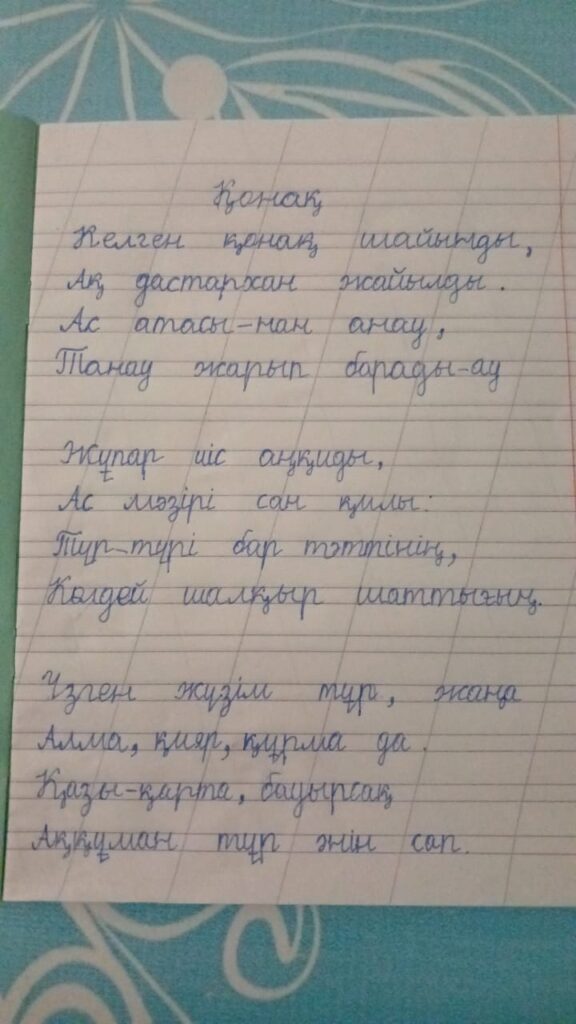 Қонақ
Келген қонақ шайынды,
Ақ дастархан жайылды.
Ас атасы-нан анау,
Танау жарып барады-ау
Жұпар иіс аңқиды,
Ас мәзірі сан қилы:
Түр-түрі бар тәттінің,
Көлдей шалқыр шаттығың.
Үзген жүзім тұр, жаңа
Алма, қияр, құрма да.
Қазы-қарта, бауырсақ
Аққұман тұр әнін сап.